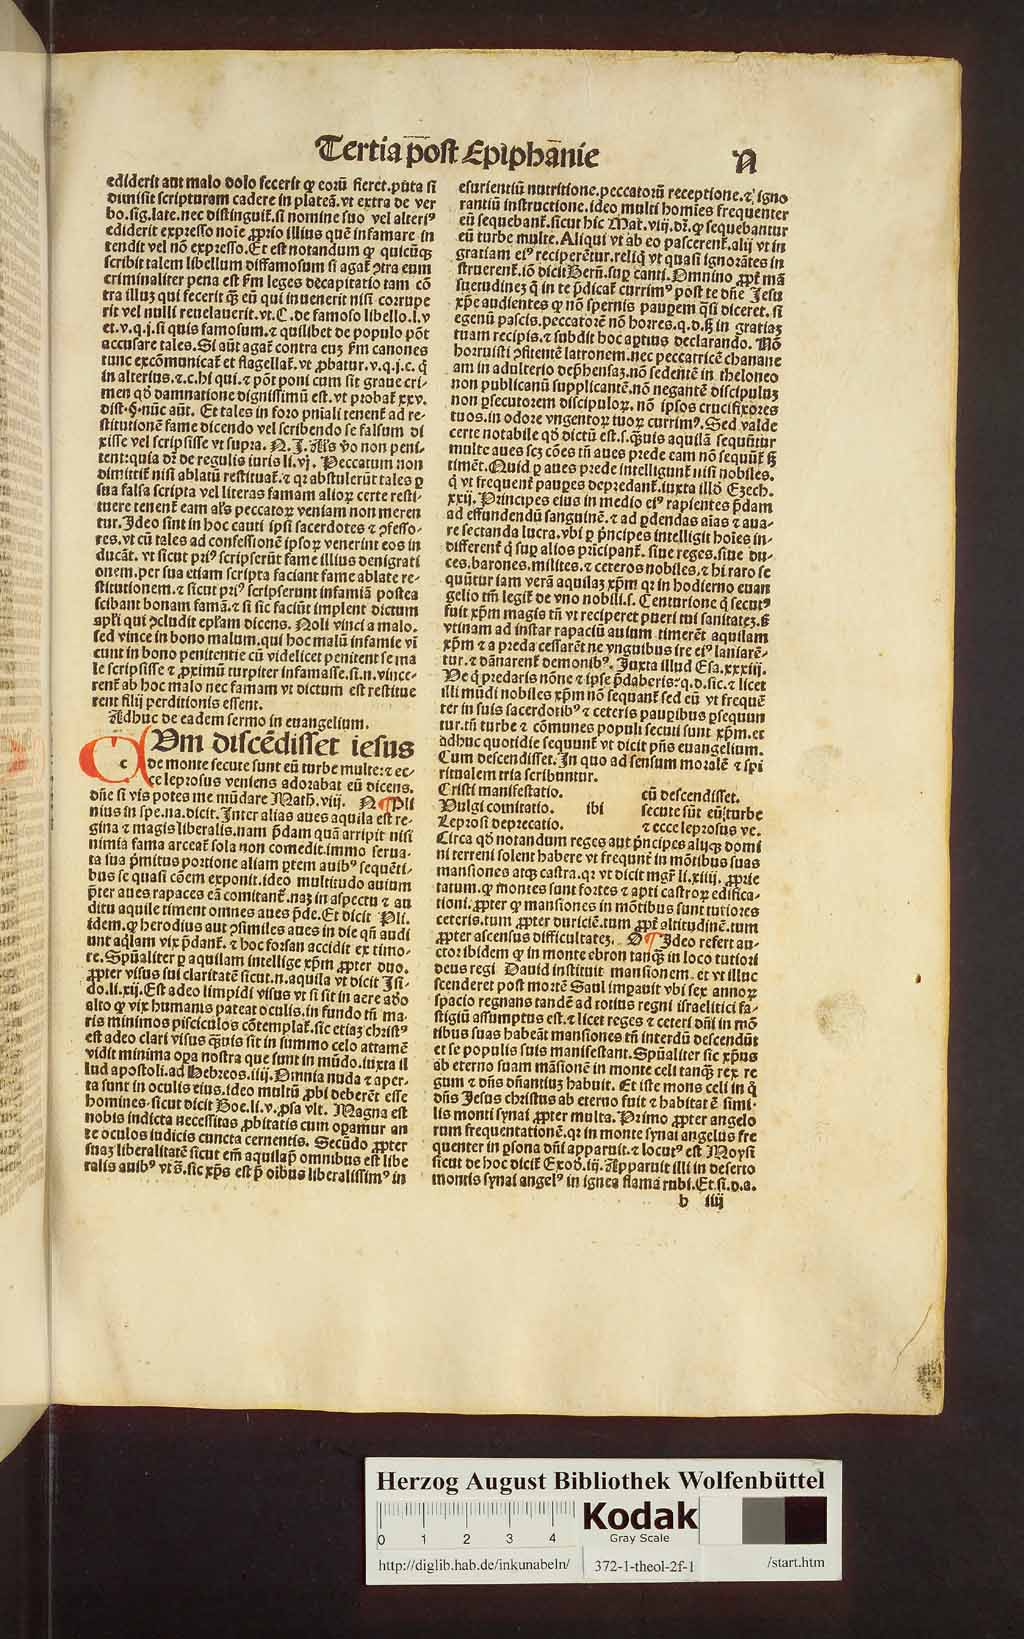 Tertia post Epiphanie
N
ediderit aut malo dolo fecerit ꝙ eorū fieret. puta si
dimisit scripturam cadere in plateā. vt extra de ver
bo. sig. late. nec distinguit̄. si nomine suo vel alteriꝰ
ediderit expresso noīe ꝓprio illius quē infamare in
tendit vel nō expresso. Et est notandum ꝙ quicūqꝫ
scribit talem libellum diffamosum si agat̄ ꝯtra eum
criminaliter pena est ẜm leges decapitatio tam cō
tra illuꝫ qui fecerit qꝫ eū qui inuenerit nisi corrupe
rit vel nulli reuelauerit. vt. C. de famoso libello. l. v
et. v. q. j. si quis famosum. ⁊ quilibet de populo pōt
accusare tales. Si aūt agat̄ contra euꝫ ẜm canones
tunc excōmunicat̄ et flagellat̄. vt ꝓbatur. v. q. j. c. q̄
in alterius. ⁊. c. hi qui. ⁊ pōt poni cum sit graue cri-
men qd̄ damnatione dignissimū est. vt probat̄ xxv.
dist. §. nūc aūt. Et tales in foro pniali tenent̄ ad re-
stitutionē fame dicendo vel scribendo se falsum di
xisse vel scripsisse vt supra. N. J. Al̄s ꝟo non peni-
tent: quia dr̄ de regulis iuris li. vj. Peccatum non
dimittit̄ nisi ablatū restituat̄. ⁊ qꝛ abstulerūt tales ꝑ
sua falsa scripta vel literas famam alioꝝ certe resti-
tuere tenent̄ eam al̄s peccatoꝝ veniam non meren
tur. Ideo sint in hoc cauti ipsi sacerdotes ⁊ ꝯfesso-
res. vt cū tales ad confessionē ipsoꝝ venerint eos in
ducāt. vt sicut priꝰ scripserūt fame illius denigrati
onem. per sua etiam scripta faciant fame ablate re-
stitutionem. ⁊ sicut priꝰ scripserunt infamiā postea
scibant bonam famā. ⁊ si sic faciūt implent dictum
apl̄i qui ꝯcludit ep̄lam dicens. Noli vinci a malo.
sed vince in bono malum. qui hoc malū infamie vī
cunt in bono penitentie cū videlicet penitent se ma
le scripsisse ⁊ ꝓximū turpiter infamasse. si. n. vince-
rent̄ ab hoc malo nec famam vt dictum est restitue
rent filij perditionis essent.
Adhuc de eadem sermo in euangelium.
CUm discēdisset iesus
c de monte secute sunt eū turbe multe: ⁊ ec-
ce leprosus veniens adorabat eū dicens.
dn̄e si vis potes me mūdare Math. viij. N ¶ Pli
nius in spe. na. dicit. Inter alias aues aquila est re-
gina ⁊ magis liberalis. nam p̄dam quā arripit nisi
nimia fama arceat̄ sola non comedit. immo serua-
ta sua p̄mitus portione aliam ꝑtem auibꝰ sequēti-
bus se quasi cōem exponit. ideo multitudo auium
p̄ter aues rapaces eā comitant̄. naꝫ in aspectu ⁊ au
ditu aquile timent omnes aues p̄de. Et dicit Pli.
idem. ꝙ herodius aut ꝯsimiles aues in die qn̄ audi
unt aq̄lam vix p̄dant̄. ⁊ hoc forsan accidit ex timo-
re. Spūaliter ꝑ aquilam intellige xp̄m ꝓpter duo.
ꝓpter visus sui claritatē sicut. n. aquila vt dicit Isi-
do. li. xij. Est adeo limpidi visus vt si sit in aere adeo
alto ꝙ vix humanis pateat oculis. in fundo tn̄ ma-
ris minimos pisciculos cōtemplat̄. sic etiaꝫ christꝰ
est adeo clari visus qꝫuis sit in summo celo attamē
vidit minima oꝑa nostra que sunt in mūdo. iuxta il
lud apostoli. ad Hebreos. iiij. Omnia nuda ⁊ aper-
ta sunt in oculis eius. ideo multū ꝓbi deberēt esse
homines. sicut dicit Boe. li. v. ꝓsa vlt. Magna est
nobis indicta necessitas ꝓbitatis cum oꝑamur an
te oculos iudicis cuncta cernentis. Secūdo ꝓpter
suaꝫ liberalitatē sicut em̄ aquila p̄ omnibus est libe
ralis auibꝰ vt s̄. sic xp̄s est p̄ oībus liberalissimꝰ in
esurientiū nutritione. peccatorū receptione. ⁊ igno
rantiū instructione. ideo multi homīes frequenter
eū sequebant̄. sicut hic Mat. viij. dr̄. ꝙ sequebantur
eū turbe multe. Aliqui vt ab eo pascerent̄. alij vt in
gratiam eiꝰ reciperētur. reliq̄ vt quasi ignorātes in
struerent̄. iō dicit Bern̄. suꝑ canti. Omnino ꝓpt̄ mā
suetudineꝫ q̄ in te p̄dicat̄ currimꝰ post te dn̄e Jesu
xp̄e audientes ꝙ nō spernis pauꝑem q̄si diceret. si
egenū pascis. peccatorē nō horres. q. d. sꝫ in gratiaꝫ
tuam recipis. ⁊ subdit hoc aꝑtius declarando. Nō
horruisti ꝯfitentē latronem. nec peccatricē chanane
am in adulterio dep̄hensaꝫ. nō sedentē in theloneo
non publicanū supplicantē. nō negantē discipulus
non ꝑsecutorem discipuloꝝ. nō ipsos crucifixores
tuos. in odore vngentoꝝ tuoꝝ currimꝰ. Sed valde
certe notabile qd̄ dictū est. s. qꝫuis aquilā sequūtur
multe aues scꝫ cōes tn̄ aues prede eam nō sequūt̄ sꝫ
timēt. Quid ꝑ aues prede intelligunt̄ nisi nobiles.
q̄ vt frequent̄ pauꝑes depredant̄. iuxta illd̄ Ezech.
xxij. Principes eius in medio eiꝰ rapientes p̄dam
ad effundendū sanguinē. ⁊ ad ꝑdendas aīas ⁊ aua-
re sectanda lucra. vbi ꝑ p̄ncipes intelligit hoīes in-
differenť q̄ suꝑ alios prīcipant̄. siue reges. siue du-
ces. barones. milites. ⁊ ceteros nobiles. ⁊ hi raro se
quūtur iam verā aquilaꝫ xp̄m qꝛ in hodierno euan
gelio tm̄ legit̄ de vno nobili. s. Centurione q̄ secutꝰ
fuit xp̄m magis tn̄ vt reciperet pueri sui sanitateꝫ. sꝫ
vtinam ad instar rapaciū auium timerēt aquilam
xp̄m ⁊ a preda cessarēt ne vnguibus ire eiꝰ laniarē-
tur. ⁊ dānarent̄ demonibꝰ. Juxta illud Esa. xxxiij.
Ve q̄ predaris nōne ⁊ ipse p̄daberis: q. d. sic. ⁊ licet
illi mūdi nobiles xp̄m nō sequant̄ sed eū vt frequē
ter in suis sacerdotibꝰ ⁊ ceteris pauꝑibus ꝑsequun
tur. tn̄ turbe ⁊ cōmunes populi secuti sunt xp̄m. et
adhuc quotidie sequunt̄ vt dicit pn̄s euangelium.
Cum descendisset. In quo ad sensum moralē ⁊ spi
ritualem tria scribuntur.
Cristi manifestatio. cū descendisset.
Vulgi comitatio. ibi secute sūt eū turbe
Leprosi deprecatio. ⁊ ecce leprosus ⁊c.
Circa qd̄ notandum reges aut p̄ncipes aliqꝫ domi
ni terreni solent habere vt frequent̄ in mōtibus suas
mansiones atqꝫ castra. qꝛ vt dicit mgr̄ li. xiiij. ꝓprie
tatum. ꝙ montes sunt fortes ⁊ apti castroꝝ edifica-
tioni. ꝓpter ꝙ mansiones in mōtibus sunt tutiores
ceteris. tum ꝓpter duriciē. tum ꝓpt̄ altitudinē. tum
ꝓpter ascensus difficultateꝫ. O ¶ Ideo refert au-
ctor ibidem ꝙ in monte ebron tanqꝫ in loco tutiori
deus regi Dauid instituit mansionem. et vt illuc
scenderet post mortē Saul impauit vbi sex annoꝝ
spacio regnans tandē ad totius regni israelitici fa-
stigiū assumptus est. ⁊ licet reges ⁊ ceteri dn̄i in mō
tibus suas habeāt mansiones tn̄ interdū descendūt
et se populis suis manifestant. Spūaliter sic xp̄us
ab eterno suam māsionē in monte celi tanqꝫ rex re
gum ⁊ dn̄s dn̄antiuꝫ habuit. Et iste mons celi in q̄
dn̄s Jesus christus ab eterno fuit ⁊ habitat ē simi-
lis monti synai ꝓpter multa. Primo ꝓpter angelo
rum frequentationē. qꝛ in monte synai angelus fre
quenter in ꝑsona dn̄i apparuit. ⁊ locutꝰ est Moysi
sicut de hoc dicit̄ Exod̄. iij. Apparuit illi in deserto
montis synai angelꝰ in ignea flama rubi. Et. si. d. a.
b iiij
Herzog August Bibliothek Wolfenbüttel
0 1 2 3 4
Kodak
Gray Scale
http://diglib.hab.de/inkunabeln/
372-1-theol-2f-1
/start.htm